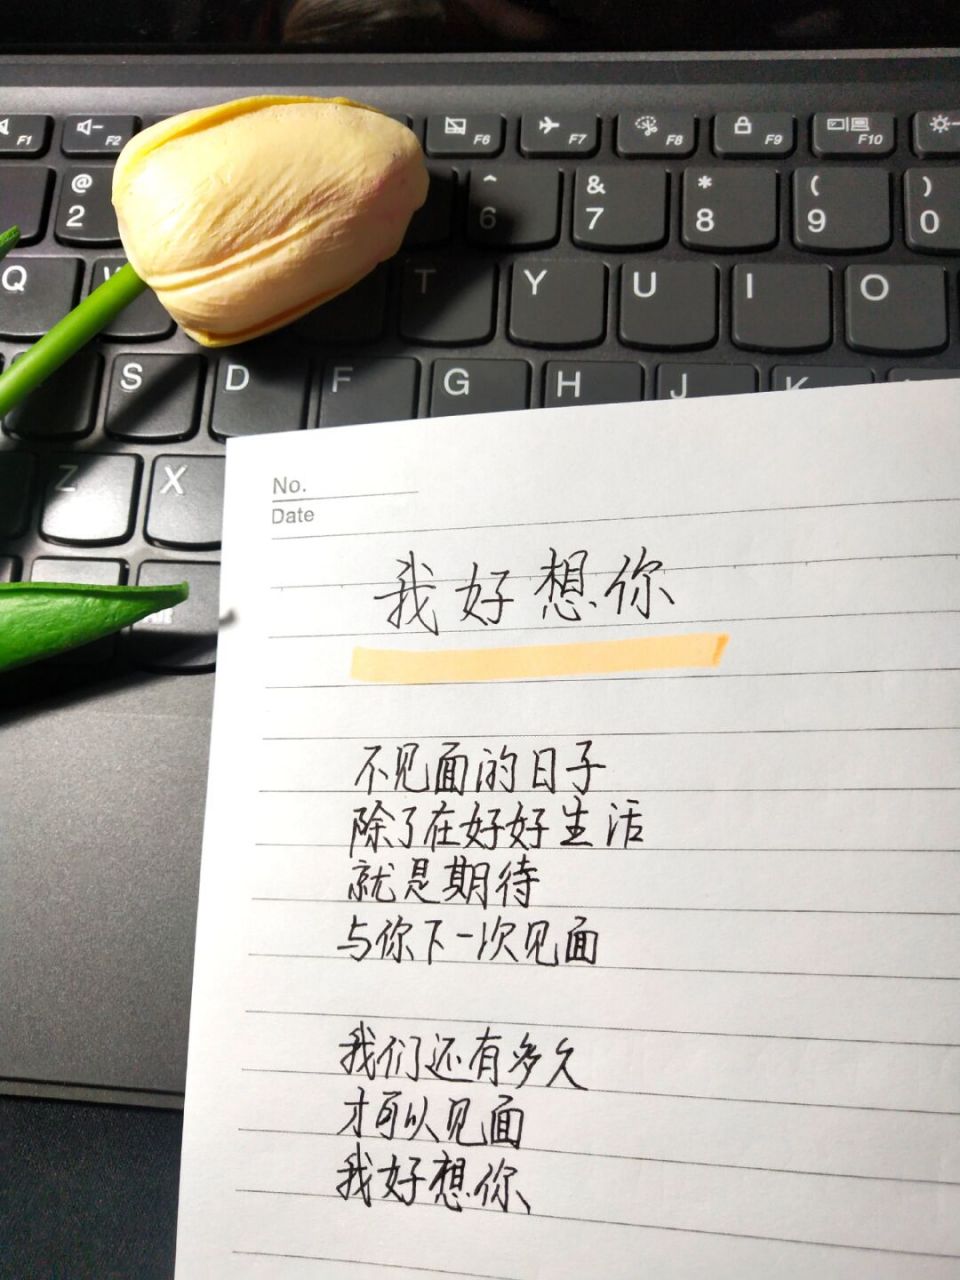 F1 F2 F6 F7 F8 F9 F10
@ ^ & * ( )
2 6 7 8 9 0
Q W T Y U I O
S D F G H J K
Z X
No.
Date
我好想你
不见面的日子
除了在好好生活
就是期待
与你下一次见面
我们还有多久
才可以见面
我好想你、